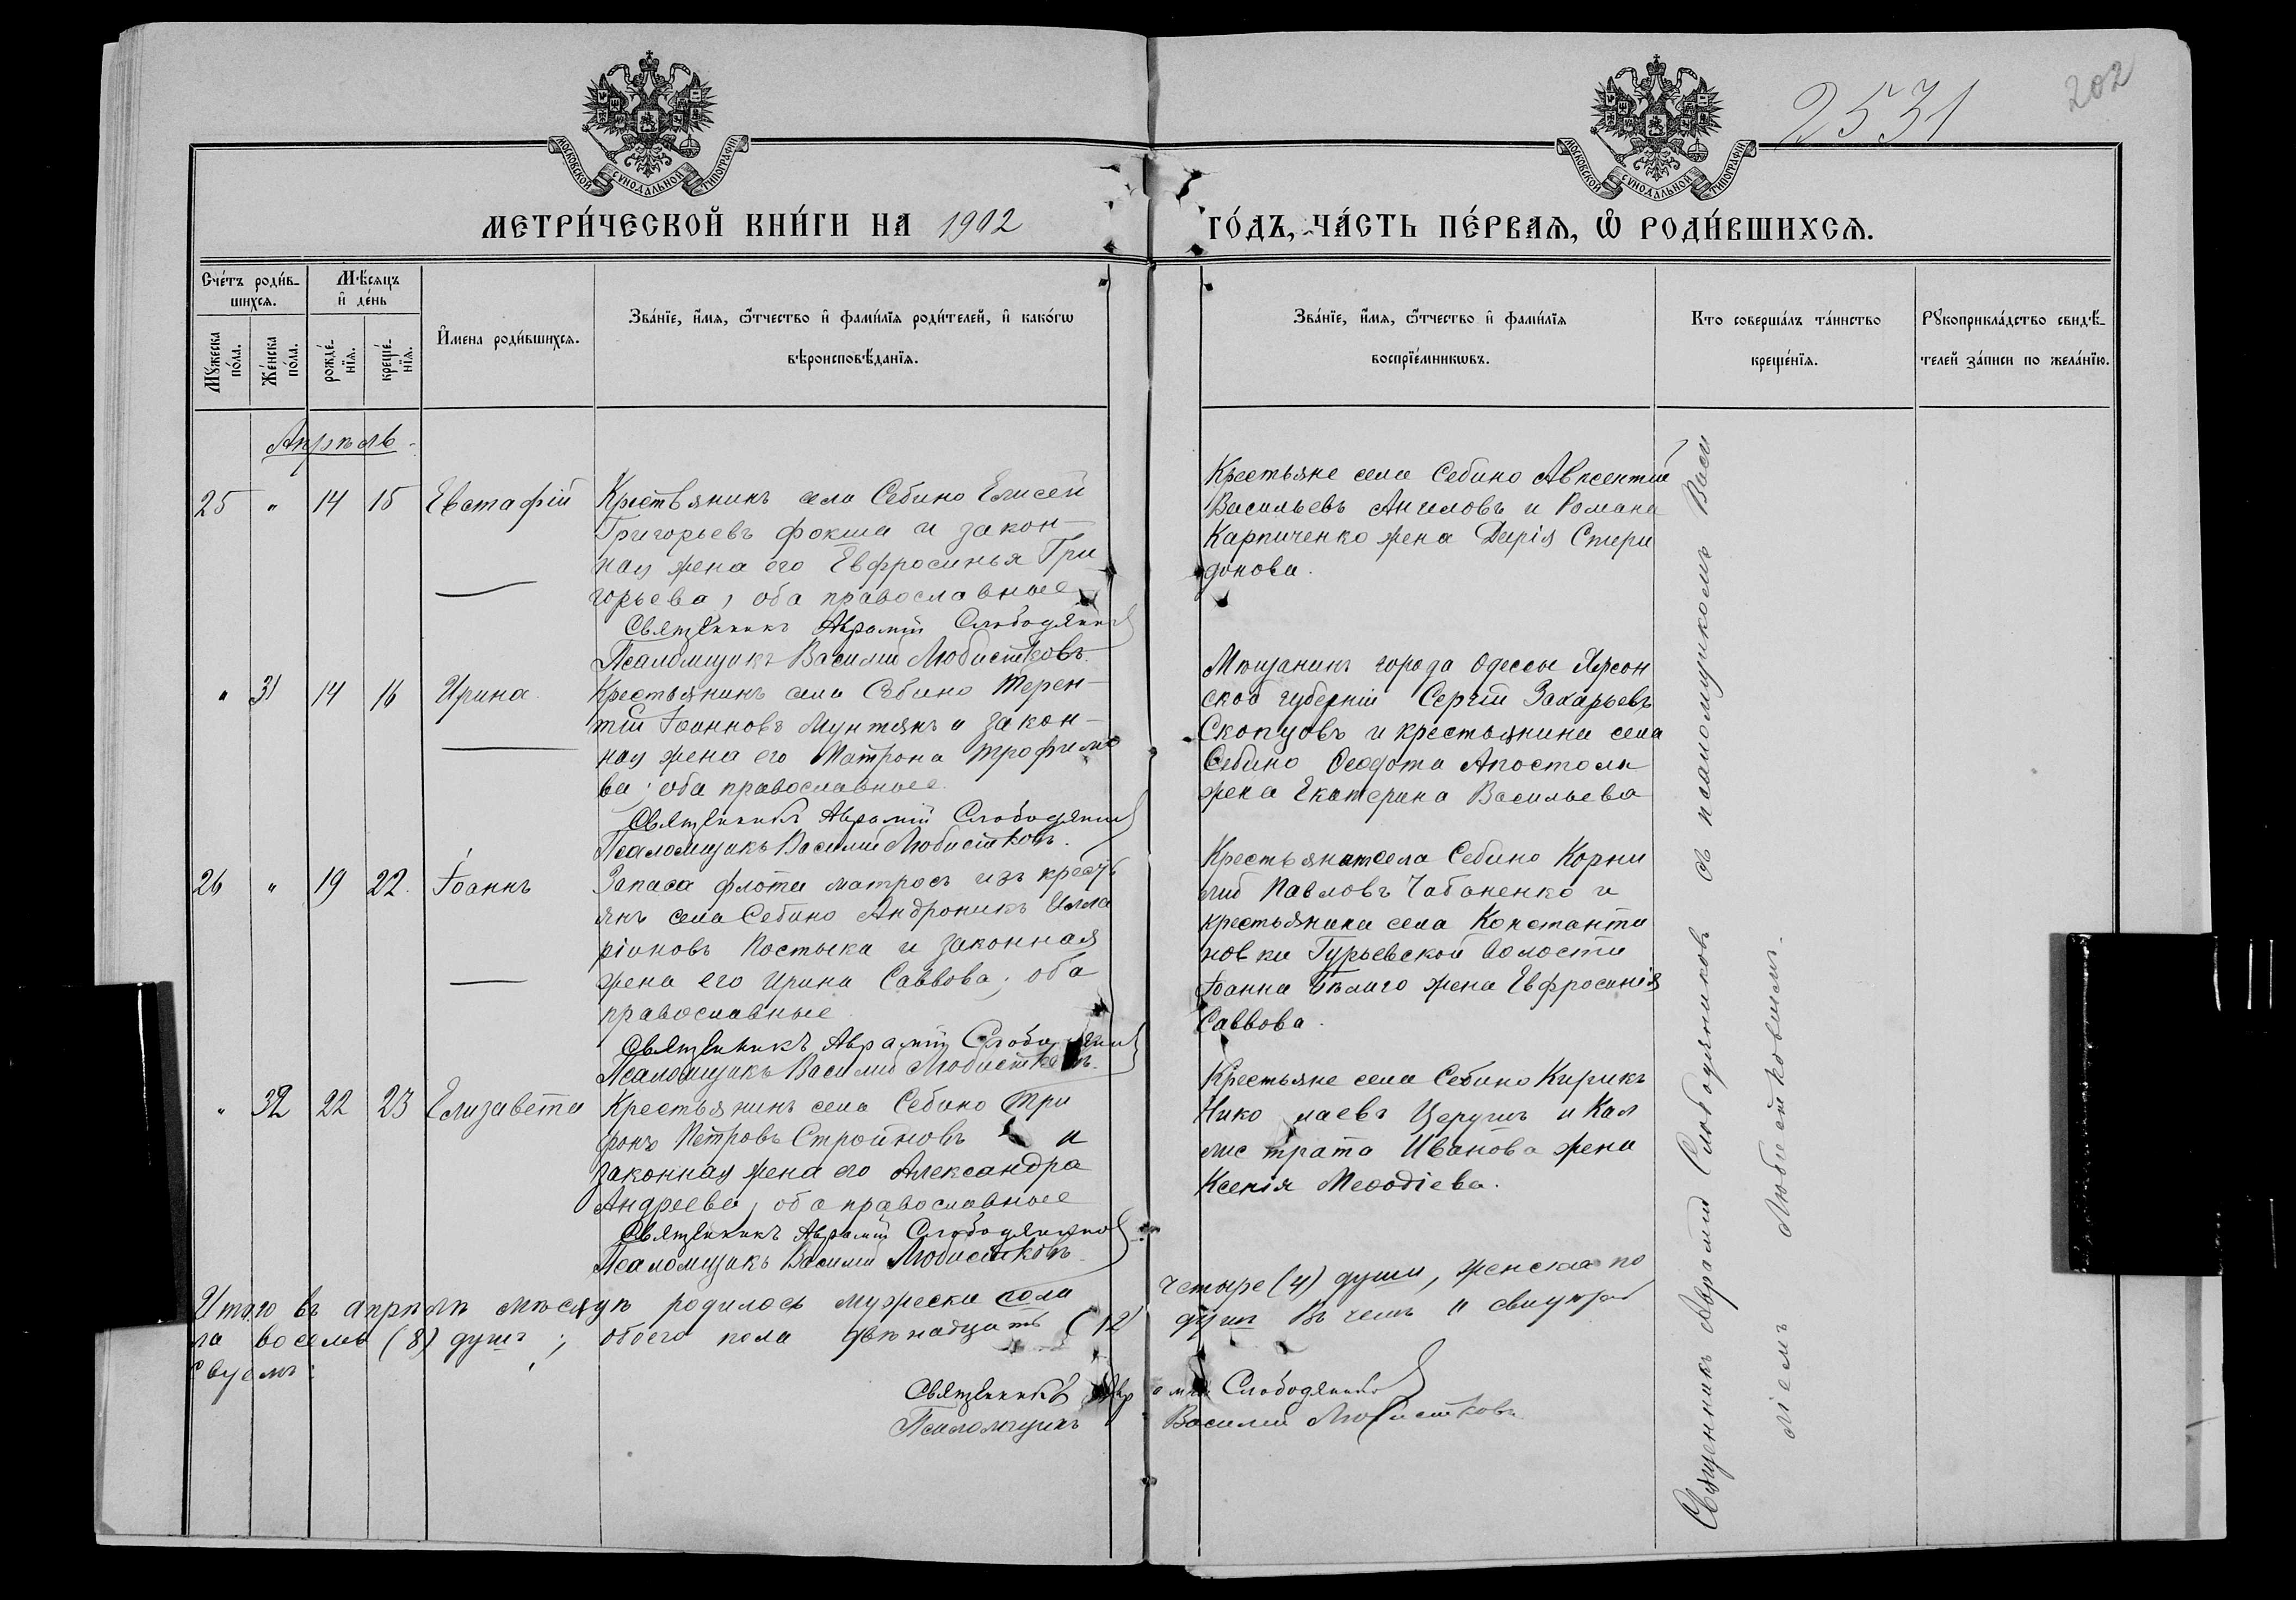 2531
202
МОСКОВСКОЙ СѴНОДАЛЬНОЙ ТИПОГРАФІИ
МОСКОВСКОЙ СѴНОДАЛЬНОЙ ТИПОГРАФІИ
МЕТРИ́ЧЕСКОЙ КНИ́ГИ НА 1902 ГО́ДЪ, ЧА́СТЬ ПЕ́РВАѦ, Ѡ҆ РОДИ́ВШИХСѦ.
Сче́тъ роди́в-
шихсѧ.
Мꙋ́жеска по́ла.
Же́нска по́ла.
Мѣ́сѧцъ
и҆ де́нь
рожде́-
нїѧ.
креще́-
нїѧ.
И҆мена роди́вшихсѧ.
Зва́нїе, и҆́мѧ, ѻ҆́тчество и҆ фами́лїѧ роди́телей, и҆ како́гѡ
вѣроисповѣ́данїѧ.
Зва́нїе, и҆́мѧ, ѻ҆́тчество и҆ фами́лїѧ
воспрїе́мникѡвъ.
Кто соверша́лъ та́инство
креще́нїѧ.
Рꙋкоприкла́дство свидѣ́-
телей за́писи по жела́нїю.
Апрѣль
25 " 14 15 Евстафій
Крестьянинъ села Себино Елисей
Григорьевъ Фокша и закон-
ная жена его Евфросинья Гри
горьева, оба православные
Священникъ Аврамій Слободяник
Псаломщикъ Василій Любистковъ
Крестьяне села Себино Авксентій
Васильевъ Ангиловъ и Романа
Карпиченко жена Дарія Спири
донова.
" 31 14 16 Ирина
Крестьянинъ села Себино Терен-
тій Іоанновъ Мунтянъ и закон-
ная жена его Матрона Трофимо
ва; оба православные
Священникъ Аврамій Слободяник
Псаломщикъ Василій Любистковъ.
Мѣщанинъ города Одессы Херсон
ской губерніи Сергій Захарьевъ
Скопцовъ и крестьянина села
Себино Ѳеодота Апостола
жена Екатерина Васильева
26 " 19 22. Іоаннъ
Запаса флота матросъ изъ кресть
янъ села Себино Андроникъ Илла
ріоновъ Костыка и законная
жена его Ирина Саввова; оба
православные
Священникъ Аврамій
Псаломщикъ Василій
села Себино Корни
лій Павловъ Чабаненко и
крестьянина села Константи
новки Гурьевской волости
Іоанна Бѣлаго жена Евфросинія
Саввова.
" 32 22 23 Елизавета
Крестьянинъ села Себино Три
фонъ Петровъ Стройновъ и
законная жена его Александра
Андреева, оба православные
Священникъ Аврамій Слободяник
Псаломщикъ Василій Любистковъ
Крестьяне села Себино Кирикъ
Николаевъ Церушъ и Кал
листрата Иванова жена
Ксенія Меѳодіева.
Итого въ апрѣлѣ мѣсяцѣ родилось мужеска пола четыре (4) души, женска по
ла восемь (8) душъ; обоего пола двѣнадцать (12 душъ въ чемъ и свидѣтель
ствуемъ:
Священникъ Аврамій Слободяник
Псаломщикъ Василій Любистковъ
Священникъ Аврамій Слободяниковъ съ псаломщикомъ Васи
ліемъ Любистковымъ.